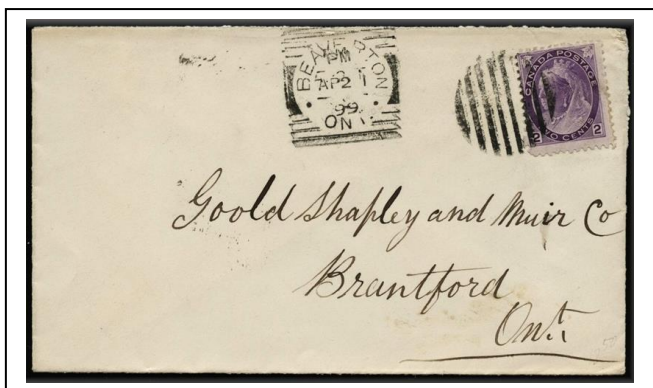 BEAVERTON
PM
AP 21
99
ONT.
CANADA POSTAGE
2 TWO CENTS 2
Goold Shapley and Muir Co
Brantford
Ont.